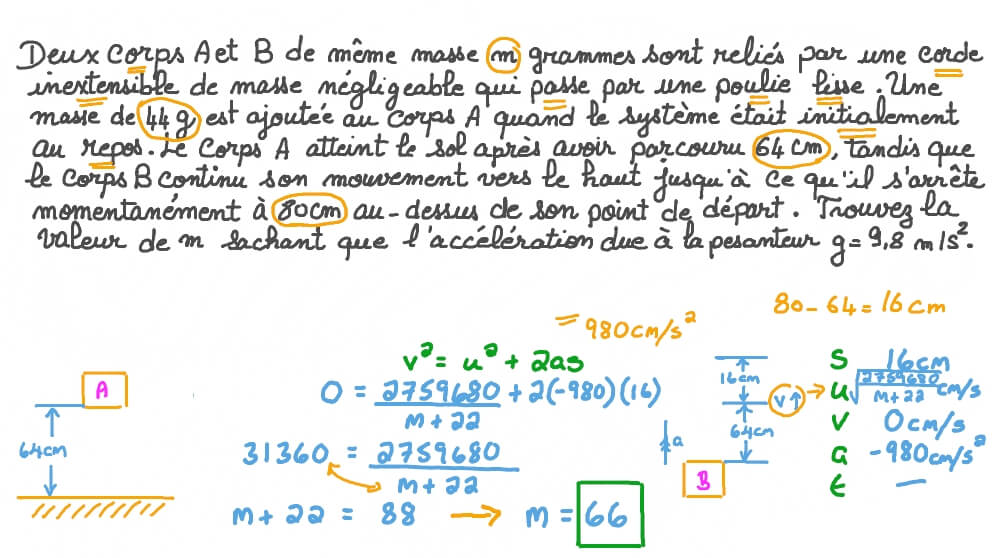 Deux corps A et B de même masse m grammes sont reliés par une corde
inextensible de masse négligeable qui passe par une poulie lisse. Une
masse de 44 g est ajoutée au corps A quand le système était initialement
au repos. Le corps A atteint le sol après avoir parcouru 64 cm, tandis que
le corps B continu son mouvement vers le haut jusqu'à ce qu'il s'arrête
momentanément à 80cm au-dessus de son point de départ. Trouvez la
valeur de m sachant que l'accélération due à la pesanteur g = 9,8 m/s².
= 980cm/s²
80 - 64 = 16 cm
v² = u² + 2as
0 = 2759680/m+22 + 2(-980)(16)
31360 = 2759680/m+22
m + 22 = 88 → m = 66
A
64cm
16cm
v↑
64cm
a
B
S 16cm
u √2759680/m+22 cm/s
v 0cm/s
a -980cm/s²
t —